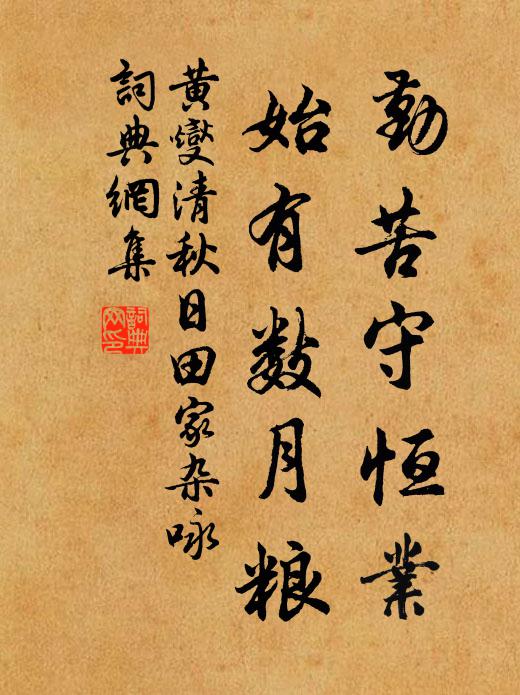 勤苦守恒業
始有数月粮
黄燮清秋日田家杂咏
詞典網集
詞典
网印